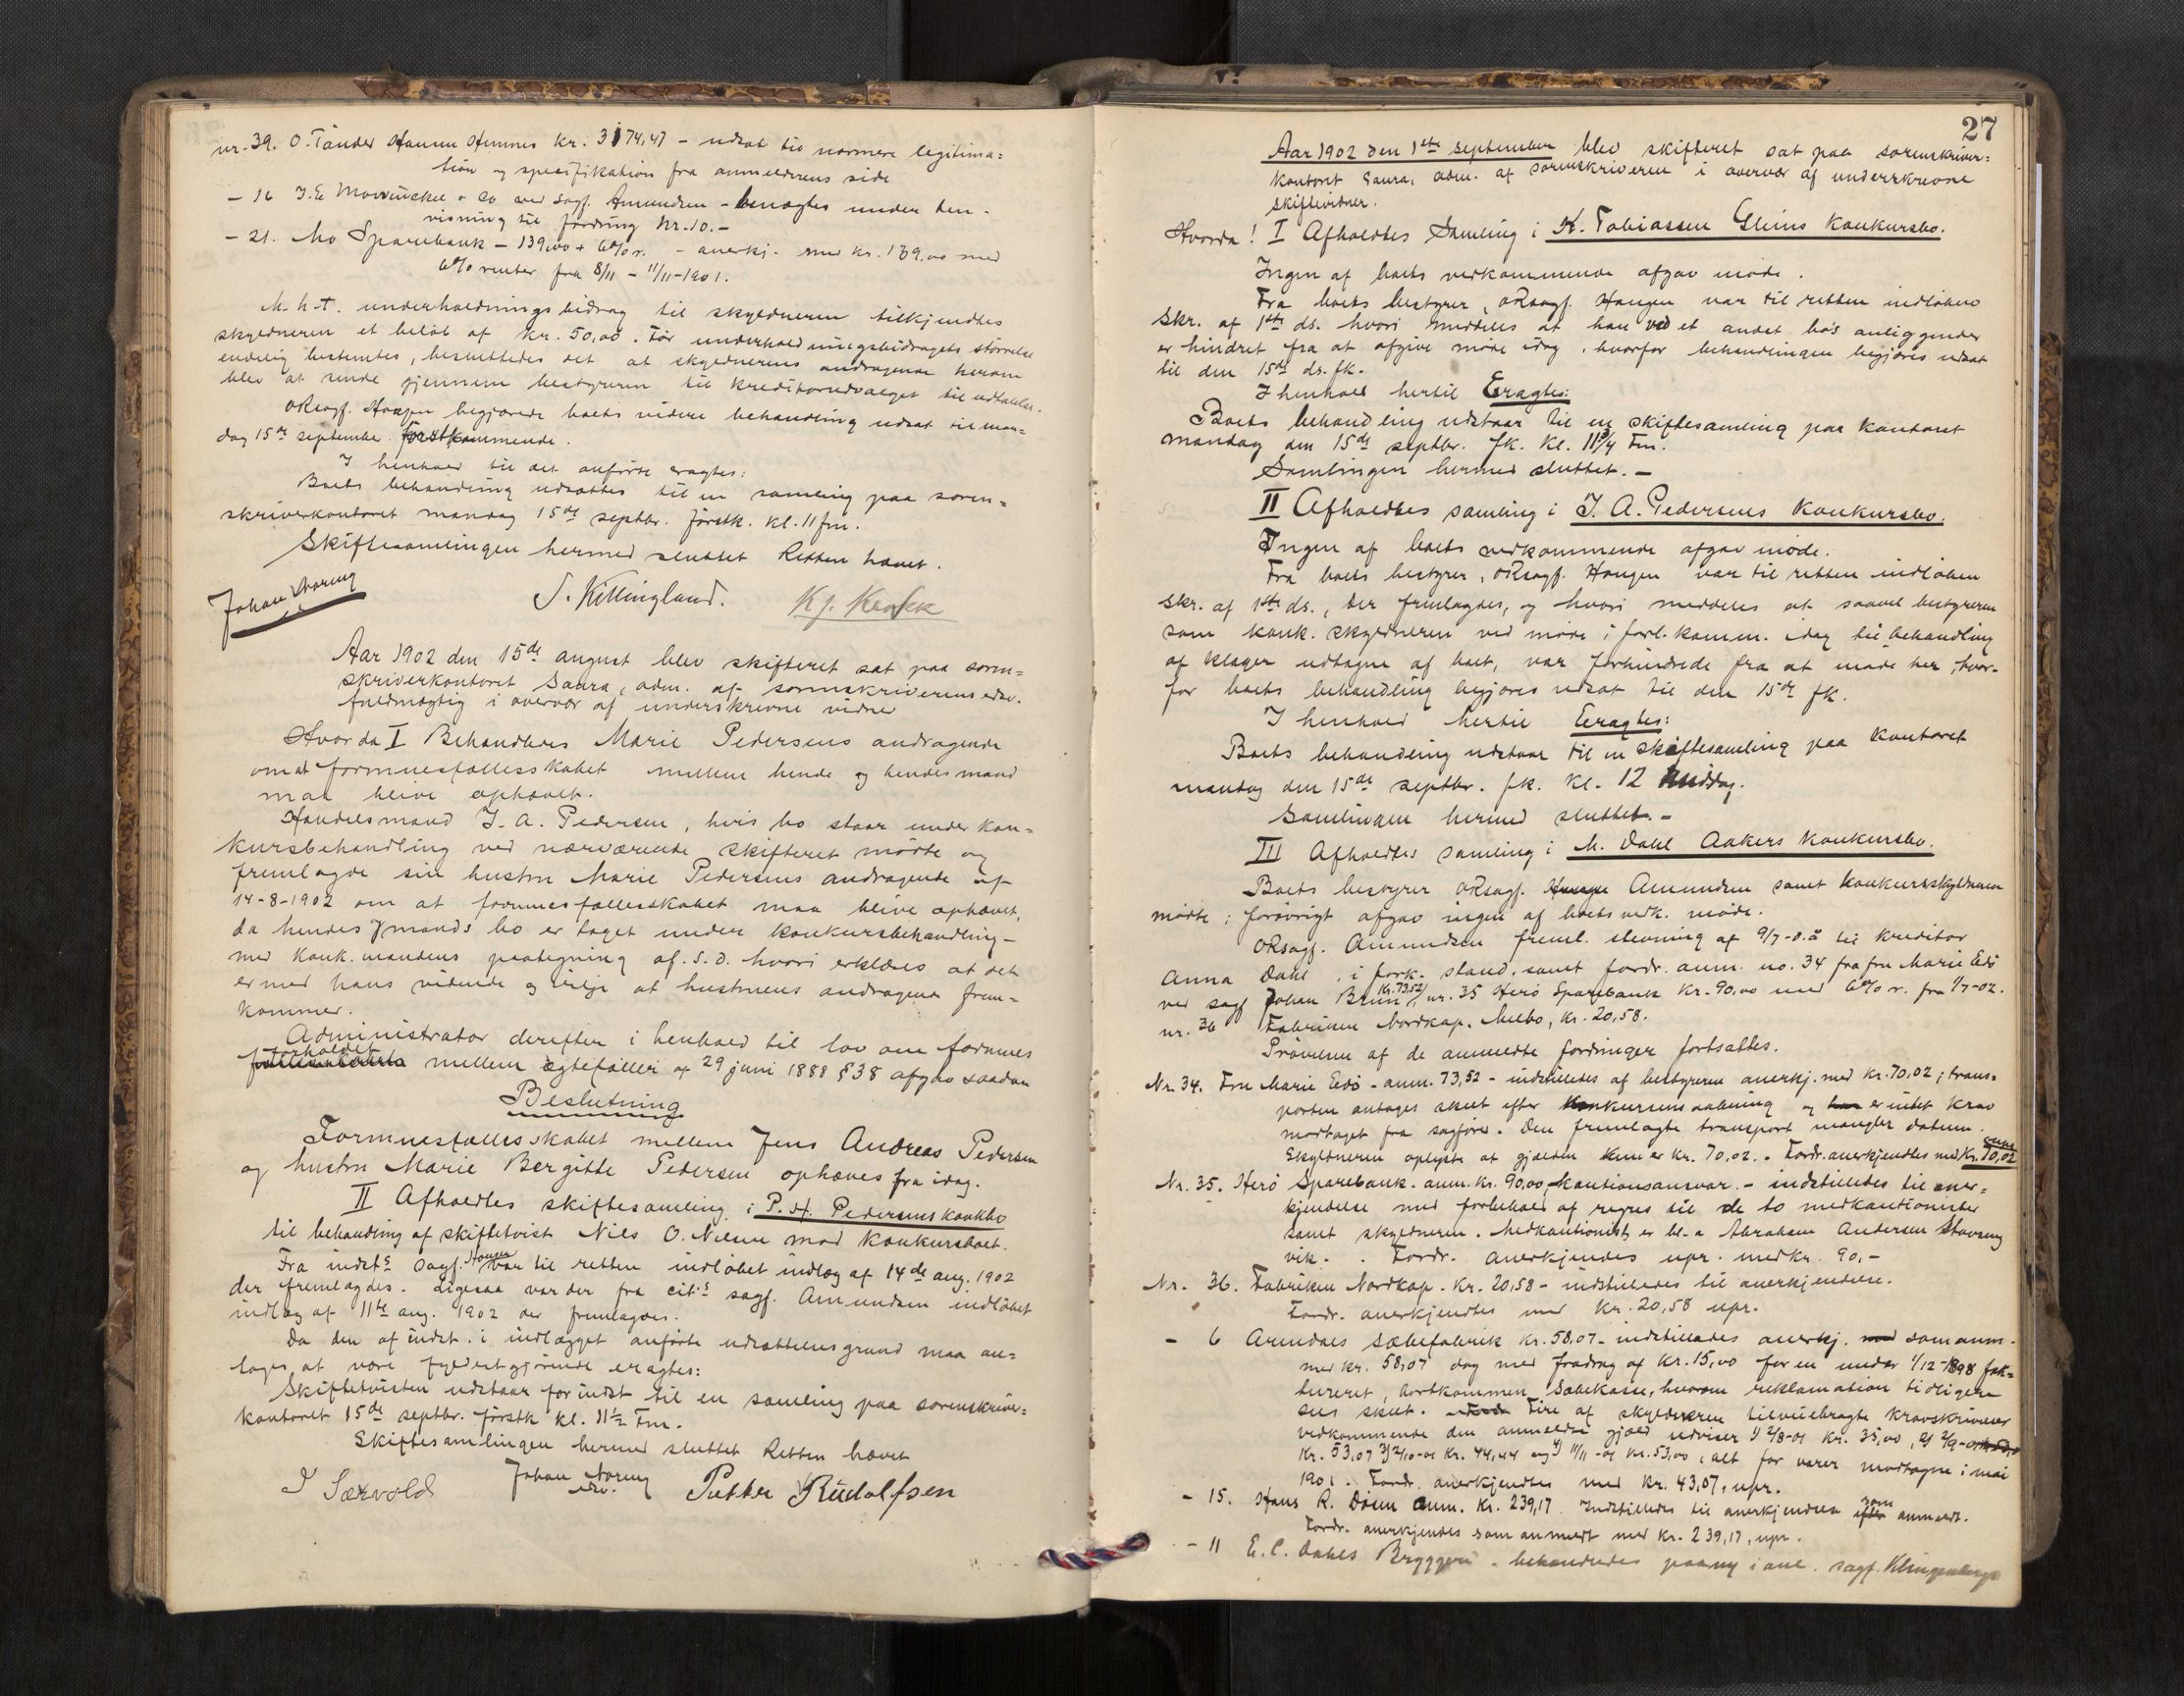 nr. 39. O. Tånder Hauan Hemnes kr. 3174,47 – udsat til nærmere legitima=
tion og specifikation fra anmelderens side
– 16 J. E. Mowinckel + Co ved sagf. Amundsen – benægtes under hen-
visning til fordring Nr. 10. –
– 21. Mo Sparebank – 139,00 + 6% r. – anerkj. med kr. 139,00 med
6% renter fra 8/11 – 11/11-1901.
M. h. t. underholdningsbidrag til skyldneren tilkjendtes
skyldneren et beløb af kr. 50,00. Før underholdningsbidragets størrelse
endelig bestemtes, besluttedes det at skyldnerens andragende herom
blev at sende gjennem bestyreren til kreditorudvalget til udtalelse.
ORsagf. Haugen begjærede boets videre behandling udsat til man=
dag 15de september førstkommende.
I henhold til det anførte eragtes:
Boets behandling udsættes til en samling paa soren=
skriverkontoret mandag 15de septbr. førstk. kl. 11 fm.
Skiftesamlingen hermed sluttet Retten hævet.
Johan Noreng S. Killingland. Kj.
Aar 1902 den 15de august blev skifteret sat paa soren=
skriverkontoret Saura, adm. af sorenskriverens edsv.
fuldmægtig i overvær af underskrevne vidner
Hvorda I Behandledes Marie Pedersens andragende
om at formuesfællesskabet mellem hende og hendes mand
maa blive ophævet.
Handelsmand J. A. Pedersen, hvis bo staar under kon=
kursbehandling ved nærværende skifteret mødte og
fremlagde sin hustru Marie Pedersens andragende af
14-8-1902 om at formuesfællesskabet maa blive ophævet,
da hendes mands bo er taget under konkursbehandling –
med konk. mandens paategning af s. d. hvori erklæres at det
er med hans vidende og vilje at hustruens andragende frem=
kommer.
Administrator derefter i henhold til lov om formues
forholdet mellem ægtefæller af 29 juni 1888 § 38 afgav saadan
Beslutning
Formuesfællesskabet mellem Jens Andreas Pedersen
og hustru Marie Bergitte Pedersen ophæves fra idag.
II Afholdtes skiftesamling i P. H. Pedersens konkbo
til behandling af skiftetvist Nils O. Nilsen mod konkursboet.
Fra indsts sagf. Haugen var til retten indløbet indlæg af 14de aug. 1902
der fremlagdes. Ligesaa var der fra cits sagf. Amundsen indløbet
indlæg af 11te aug. 1902 der fremlagdes.
Da den af indst. i indlægget anførte udsættelsesgrund maa an=
tages at være fyldestgjørende eragtes:
Skiftetvisten udstaar for indst til en samling paa sorenskriver=
kontoret 15de septbr. førstk kl. 11½ Fm.
Skiftesamlingen hermed sluttet Retten hævet
J Særvold Johan Noreng edsv. Petter Rudolfsen
27
Aar 1902 den 1ste september blev skifteret sat paa sorenskriver=
kontoret Saura, adm. af sorenskriveren i overvær af underskrevne
skiftevidner.
Hvorda! I Afholdtes Samling i K. Tobiassen Gleins konkursbo.
Ingen af boets vedkommende afgav møde.
Fra boets bestyrer, ORsagf. Haugen var til retten indløben
Skr. af 1ste ds. hvori meddeles at han ved et andet bo's anliggender
er hindret fra at afgive møde idag, hvorfor behandlingen begjæres udsat
til den 15de ds. fk.
I henhold hertil Eragtes:
Boets behandling udstaar til en skiftesamling paa kontoret
mandag den 15de septbr. fk. kl. 11¾ Fm.
Samlingen hermed sluttet. –
II Afholdtes samling i J. A. Pedersens konkursbo.
Ingen af boets vedkommende afgav møde.
Fra boets bestyrer, ORsagf. Haugen var til retten indløben
skr. af 1ste ds., der fremlagdes, og hvori meddeles at saavel bestyreren
som konk. skyldneren ved møde i forl. komm. idag til behandling
af klager udtagne af boet, var forhindrede fra at møde her, hvor-
for boets behandling begjæres udsat til den 15de fk.
I henhold hertil Eragtes:
Boets behandling udstaar til en skiftesamling paa kontoret
mandag den 15de septbr. fk. kl. 12 middag.
Samlingen hermed sluttet. –
III Afholdtes samling i M. Dahl Aakers konkursbo.
Boets bestyrer ORsagf. Haugen Amundsen samt konkursskyldneren
mødte; forøvrigt afgav ingen af boets vedk. møde.
ORsagf. Amundsen freml. stevning af 9/7-d. å til kreditor
Anna Dahl, i fork. stand, samt fordr. anm. no. 34 fra fru Marie Edø
ved sagf Johan Bruun (kr. 73,52), nr. 35 Herø Sparebank kr. 90,00 med 6% r. fra 1/7-02.
nr. 36 Fabriken Nordkap. Melbo, kr. 20,58.
Prøvelsen af de anmeldte fordringer fortsattes.
Nr. 34. Fru Marie Edø – anm. 73,52 – indstilledes af bestyreren anerkj. med kr. 70,02; trans=
porten antages skeet efter konkursens aabning og har er intet krav
modtaget fra sagfører. Den fremlagte transport mangler datum.
Skyldneren oplyste at gjælden kun er kr. 70,02. Fordr. anerkjendtes med kr. 70,02 uupr
Nr. 35. Herø Sparebank. anm. kr. 90,00, kautionsansvar. – indstilledes til aner=
kjendelse med forbehold af regres til de to medkautionister
samt skyldneren. Medkautionist er bl. a Abraham Andersen Stavseng
vik. Fordr. anerkjendes upr. med kr. 90,–
Nr. 36. Fabriken Nordkap. kr. 20,58 – indstilledes til anerkjendelse.
Fordr. anerkjendtes med kr. 20,58 upr.
– 6 Arendals Sæbefabrik kr. 58,07 – indstilledes anerkj. med som anm.
med kr. 58,07 dog med fradrag af kr. 15,00 for en under 1/12-1898 fak=
tureret, bortkommen Sæbekasse, hvorom reklamation tidligere
sees skeet. Fire af skyldneren tilveiebragte kravskrivelser
vedkommende den anmeldte gjæld udviser 1) 2/8-01 kr. 35,00, 2) 2/9-01
kr. 53,07 3) 2/10-01 kr. 44,44 og 4) 11/11-01 kr. 53,00, alt for varer modtagne i mai
1901. Fordr. anerkjendtes med kr. 43,07, upr.
– 15. Hans R. Dønn anm. kr. 239,17 Indstilledes til anerkjendelse efter som anmeldt.
Fordr. anerkjendes som anmeldt med kr. 239,17, upr.
– 11 E. C. Dahls Bryggeri – behandledes paany i anl. sagf. Klingenbergs